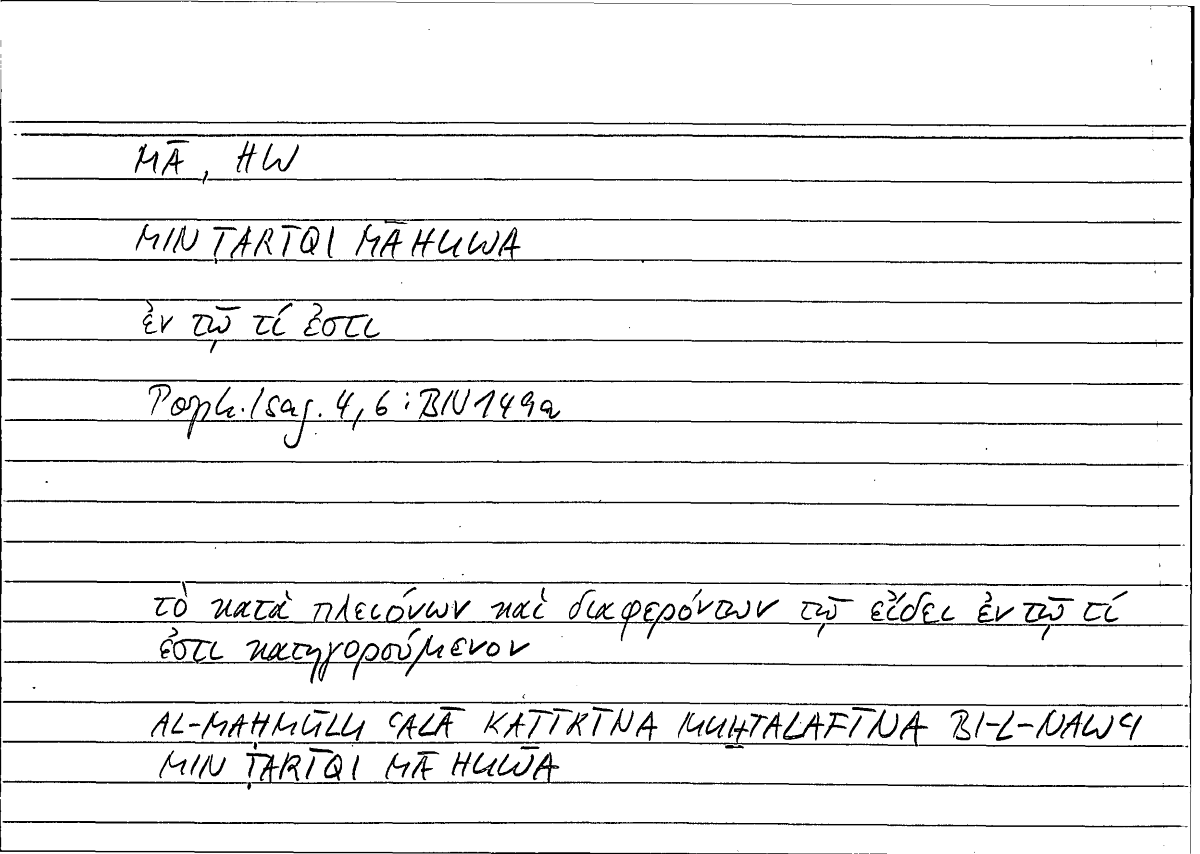 MĀ, HW
MIN ṬARĪQI MĀ HUWA
ἐν τῷ τί ἐστι
Porph. Isag. 4,6: BN 149a
τὸ κατὰ πλειόνων καὶ διαφερόντων τῷ εἴδει ἐν τῷ τί
ἐστι κατηγορούμενον
AL-MAḤMŪLU ʿALĀ KAṮĪRĪNA MUḪTALAFĪNA BI-L-NAWʿI
MIN ṬARĪQI MĀ HUWA